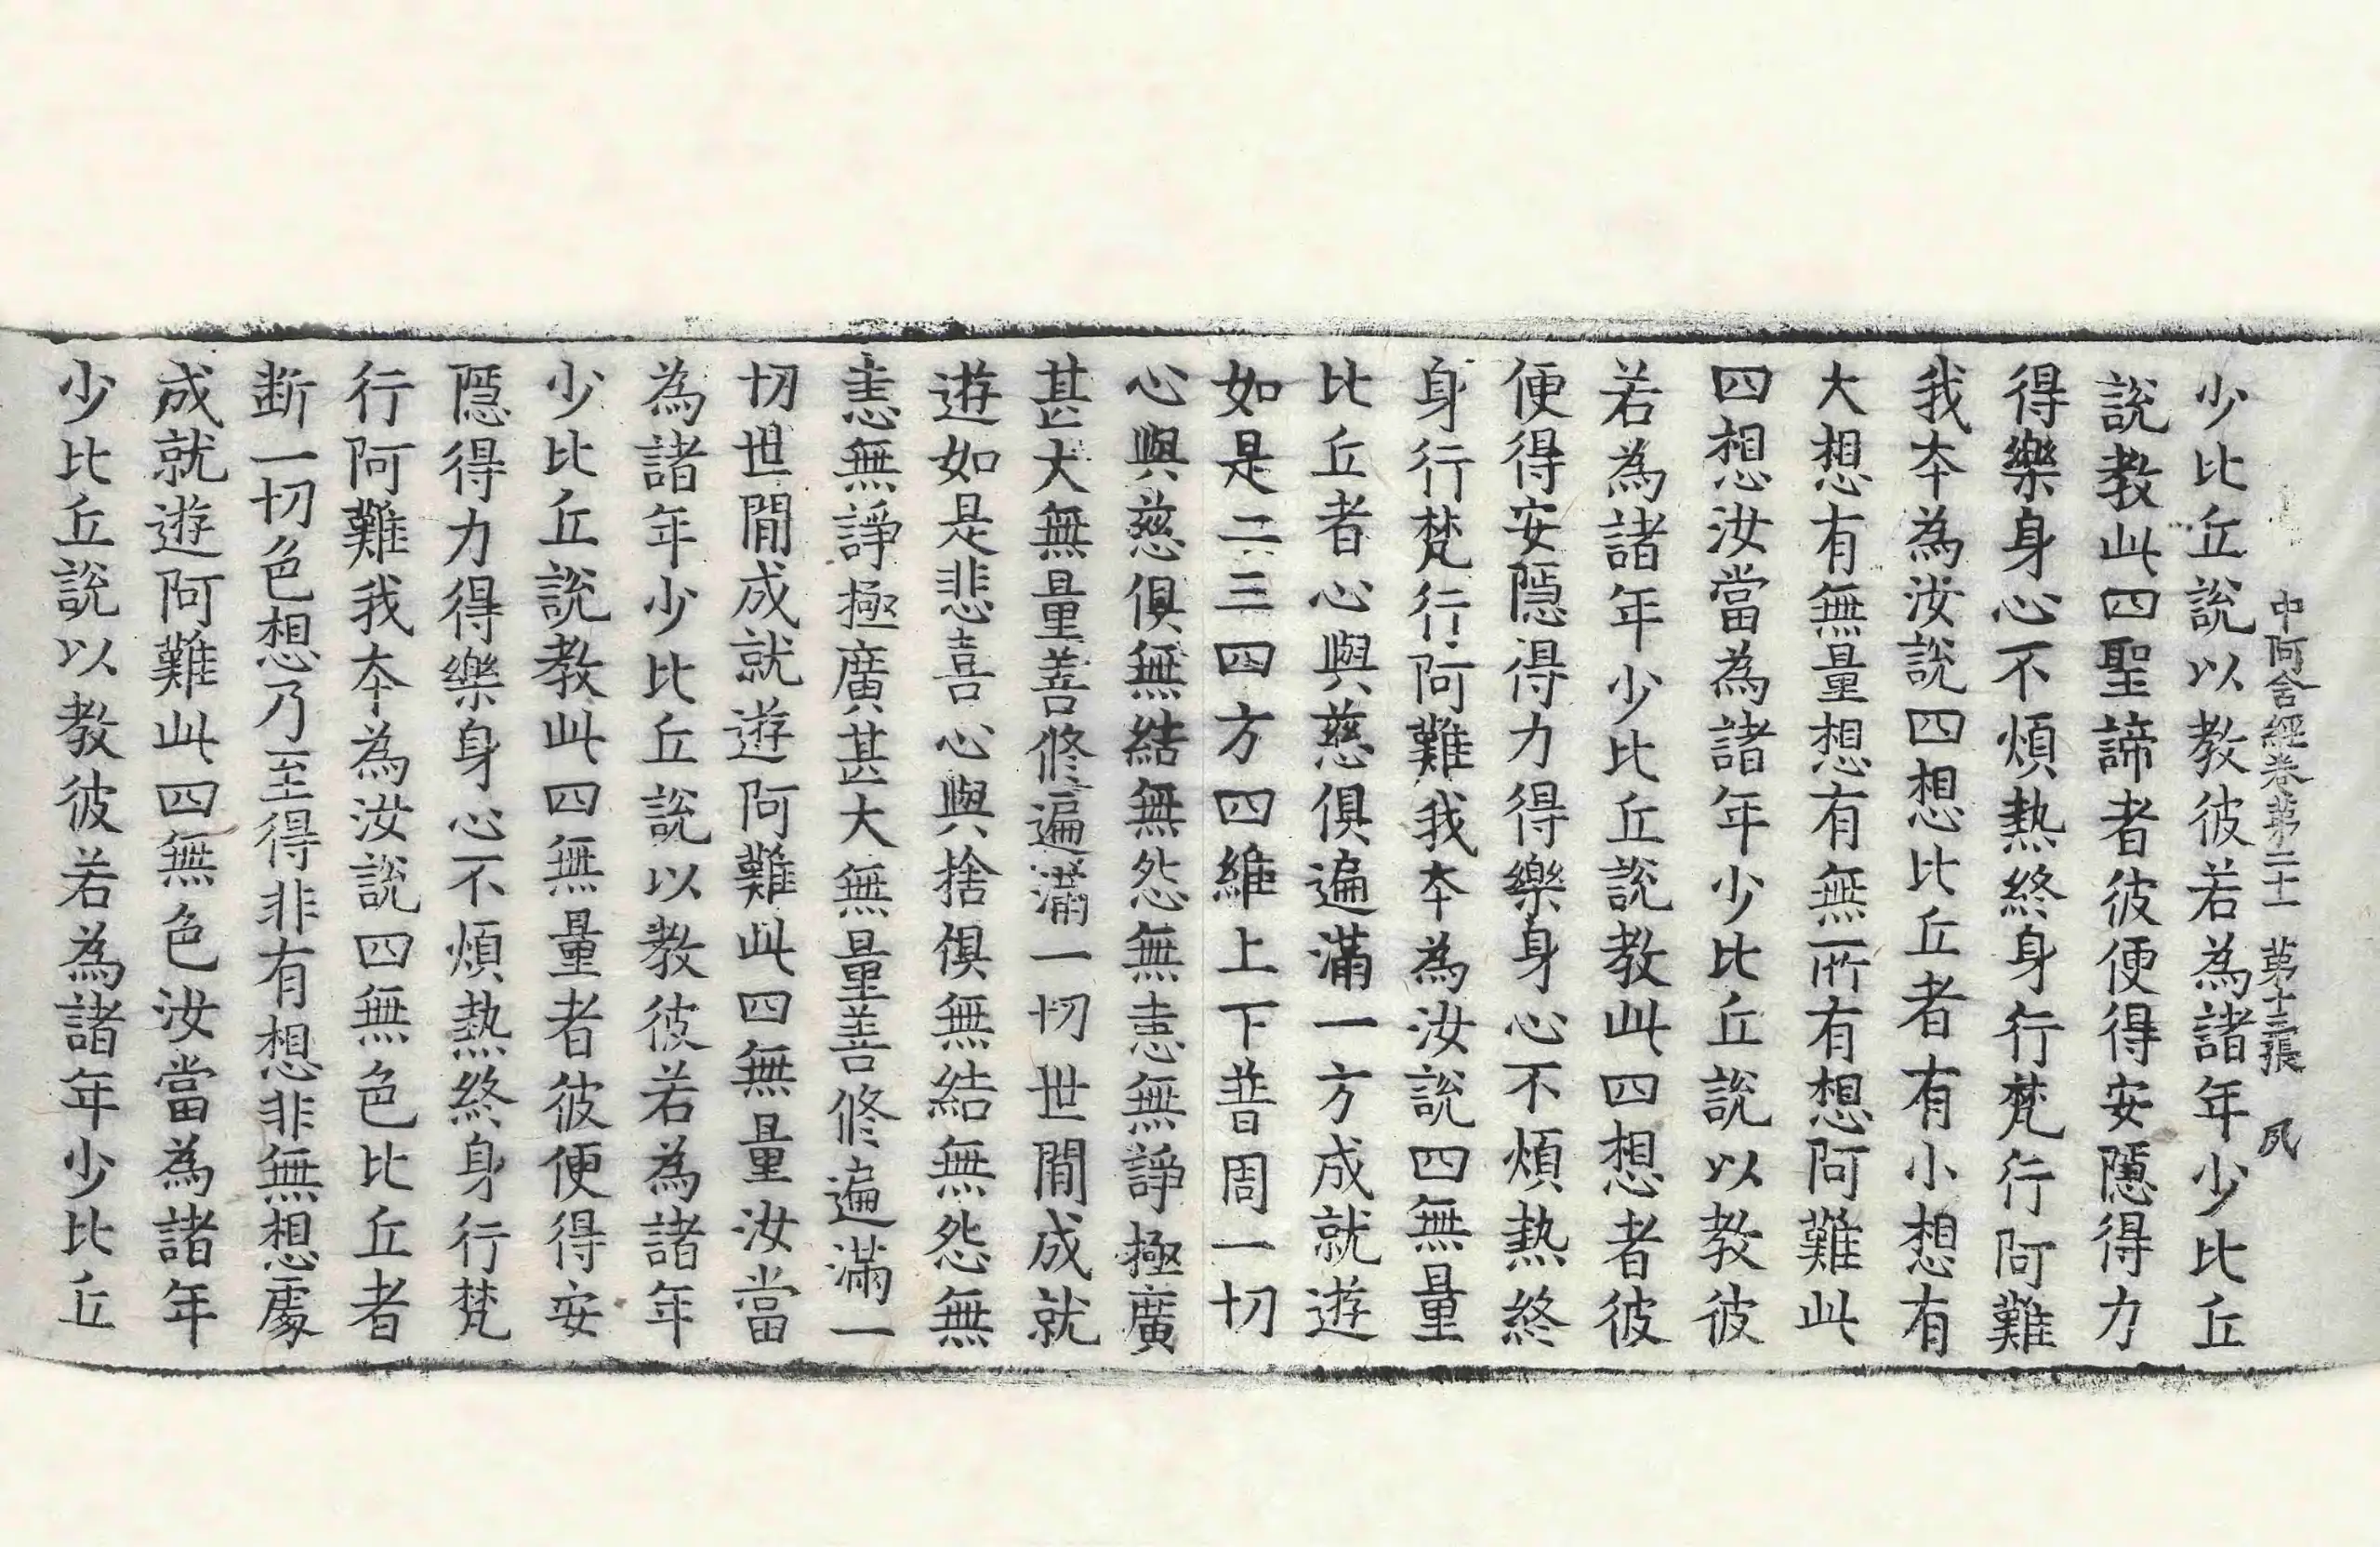 中阿含經卷第二十一　第十三張　夙
少比丘說以教彼若為諸年少比丘
說教此四聖諦者彼便得安隱得力
得樂身心不煩熱終身行梵行阿難
我夲為汝說四想比丘者有小想有
大想有無量想有無所有想阿難此
四想汝當為諸年少比丘說以教彼
若為諸年少比丘說教此四想者彼
便得安隱得力得樂身心不煩熱終
身行梵行阿難我夲為汝說四無量
比丘者心與慈俱遍滿一方成就遊
如是二三四方四維上下普周一切
心與慈俱無結無怨無恚無諍極廣
甚大無量善修遍滿一切世間成就
遊如是悲喜心與捨俱無結無怨無
恚無諍極廣甚大無量善修遍滿一
切世間成就遊阿難此四無量汝當
為諸年少比丘說以教彼若為諸年
少比丘說教此四無量者彼便得安
隱得力得樂身心不煩熱終身行梵
行阿難我夲為汝說四無色比丘者
断一切色想乃至得非有想非無想處
成就遊阿難此四無色汝當為諸年
少比丘說以教彼若為諸年少比丘